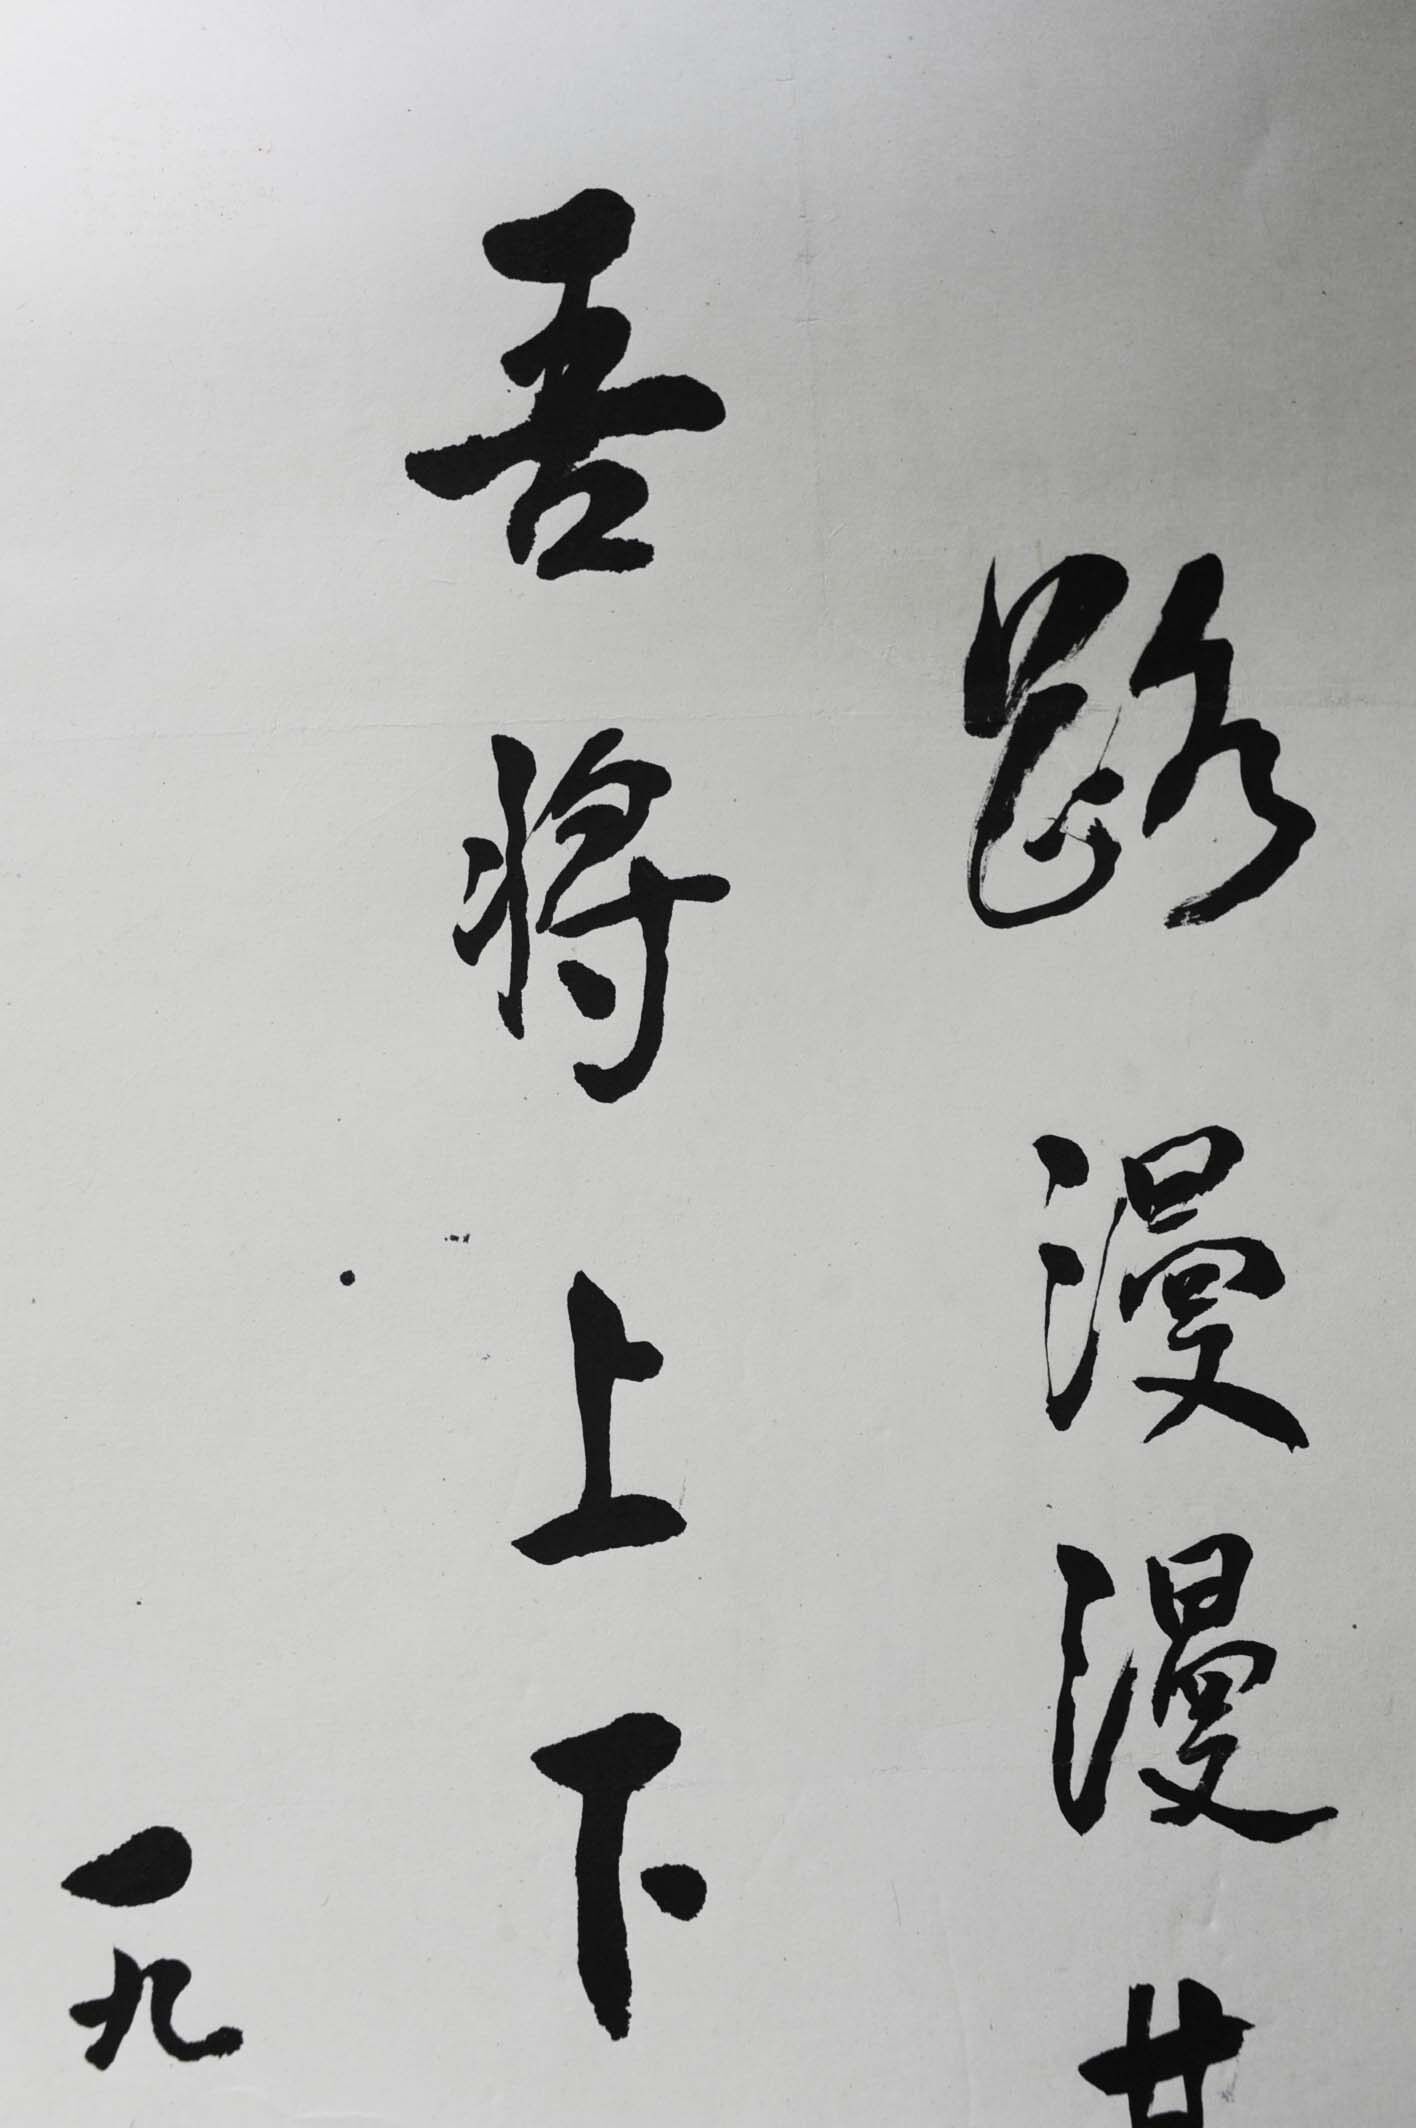 路漫漫其
吾将上下
一九